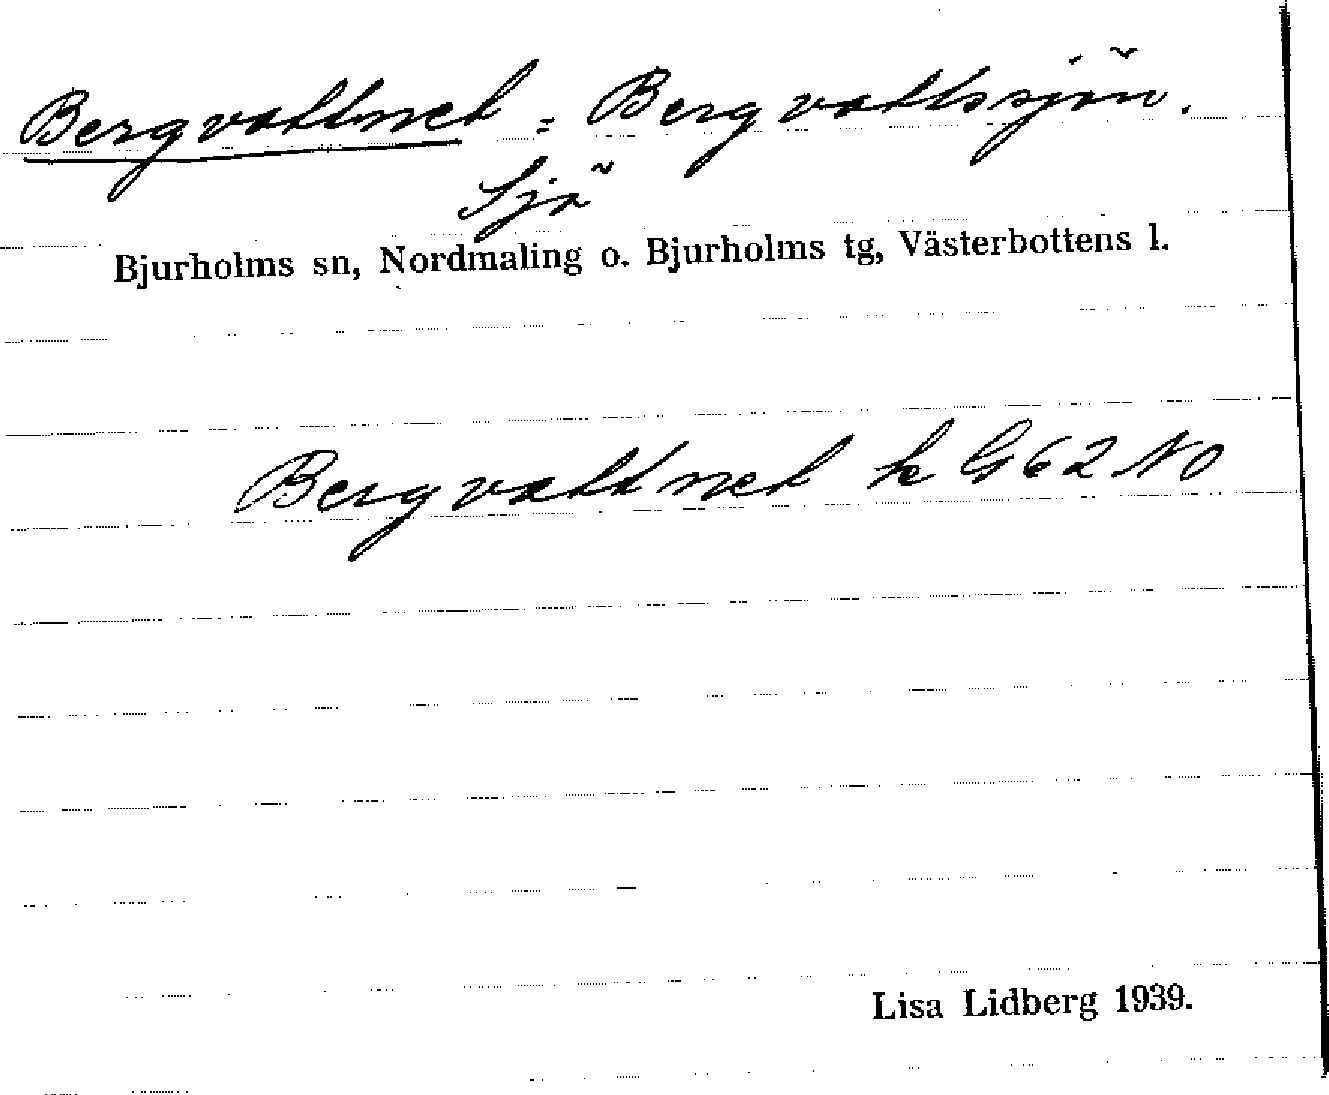 Bergvattnet = Bergvattssjön.
Sjö
Bjurholms sn, Nordmaling o. Bjurholms tg, Västerbottens l.
Bergvattnet k G 62 NO
Lisa Lidberg 1939.